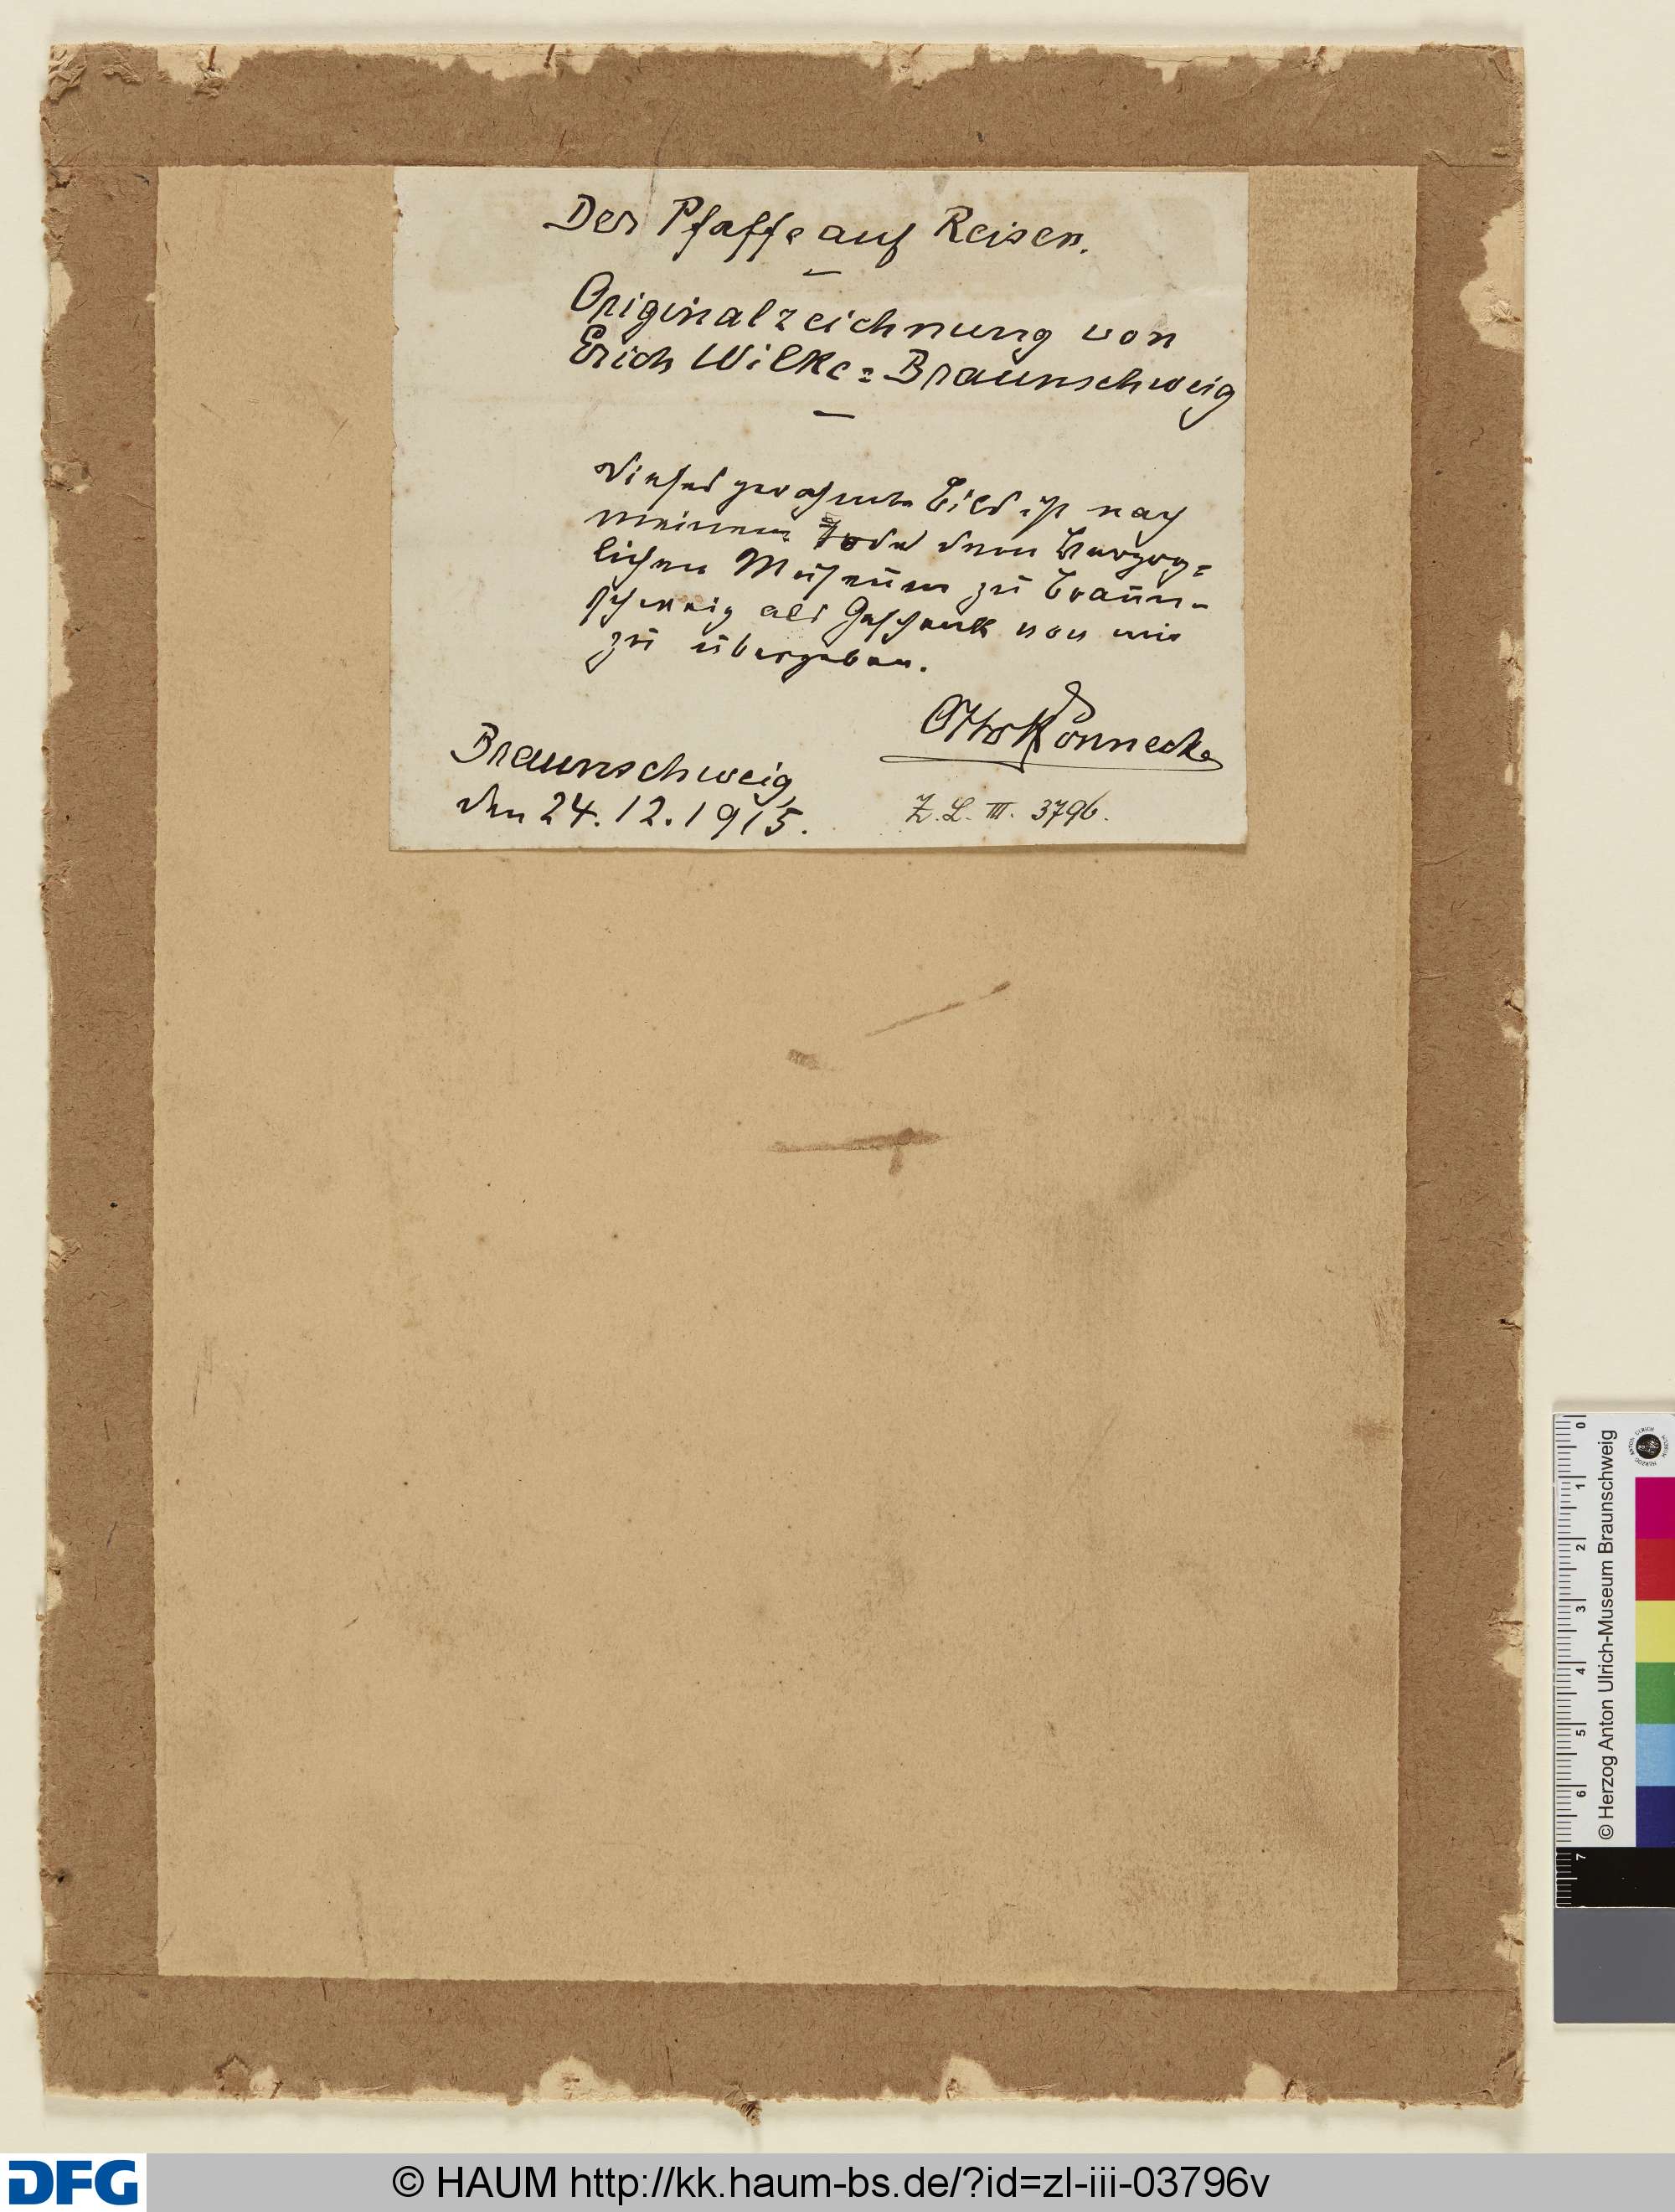 Der Pfaffe auf Reisen.
Originalzeichnung von
Erich Wilke = Braunschweig
Dieses gerahmte Bild ist nach
meinem Tode dem Herzog=
lichen Museum zu Braun-
schweig als Geschenk von mir
zu übergeben.
Otto Könnecke
Braunschweig,
den 24.12.1915.
Z. L. III. 3796.
0 1 2 3 4 5 6 7
© Herzog Anton Ulrich-Museum Braunschweig
DFG
© HAUM http://kk.haum-bs.de/?id=zl-iii-03796v